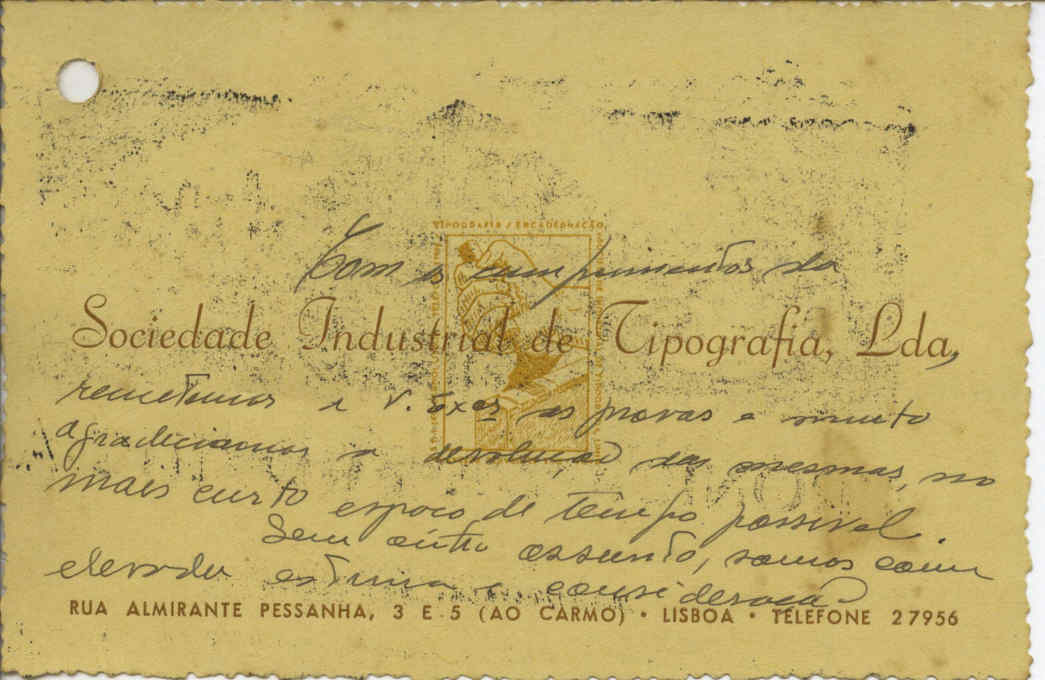 TIPOGRAFIA / ENCADERNAÇÃO
Com os cumprimentos da
Sociedade Industrial de Tipografia, Lda,
remetemos a V. Exas as provas e muito
agradeciamos a devolução das mesmas, no
mais curto espaço de tempo possivel.
Sem outro assunto, somos com
elevada estima e consideração
RUA ALMIRANTE PESSANHA, 3 E 5 (AO CARMO) • LISBOA • TELEFONE 27956